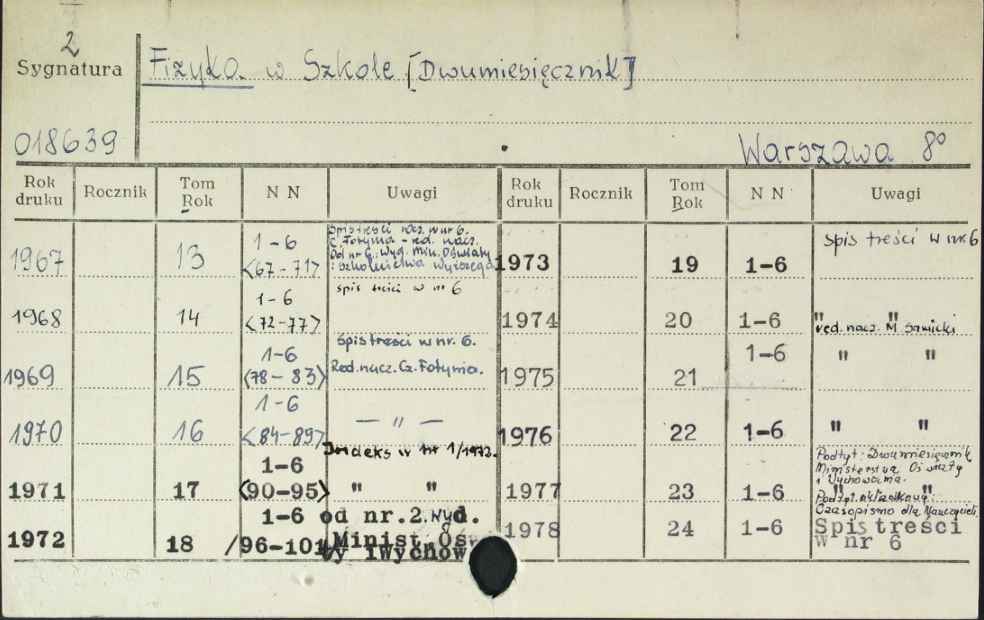 2
Sygnatura
Fizyka w Szkole [Dwumiesięcznik]
018639
Warszawa 8°
Rok druku Rocznik Tom Rok N N Uwagi Rok druku Rocznik Tom Rok N N Uwagi
1967 13 1-6 <67-71>
Spis treści rocz. w nr 6.
C. Fotyma - red. nacz.
Od nr 6: wyd. Min. Oświaty
i Szkolnictwa Wyższego
1973 19 1-6 spis treści w nr. 6
1968 14 1-6 <72-77> spis treści w nr 6
1974 20 1-6 " "
red. nacz. M Sawicki
1969 15 1-6 <78-83> Spis treści w nr. 6.
Red. nacz. Cz. Fotyma.
1975 21 1-6 " "
1970 16 1-6 <84-89> — " —
Indeks w nr 1/1972.
1976 22 1-6 " "
1971 17 1-6 <90-95> " "
1977 23 1-6 " "
Podtyt: Dwumiesięcznik
Ministerstwa Oświaty
i Wychowania.
Podtyt. okładkowy:
Czasopismo dla Nauczycieli
1972 18 1-6 /96-101/ od nr. 2. wyd.
Minist. Ośw
ty i Wychow
1978 24 1-6 Spis treści
w nr 6